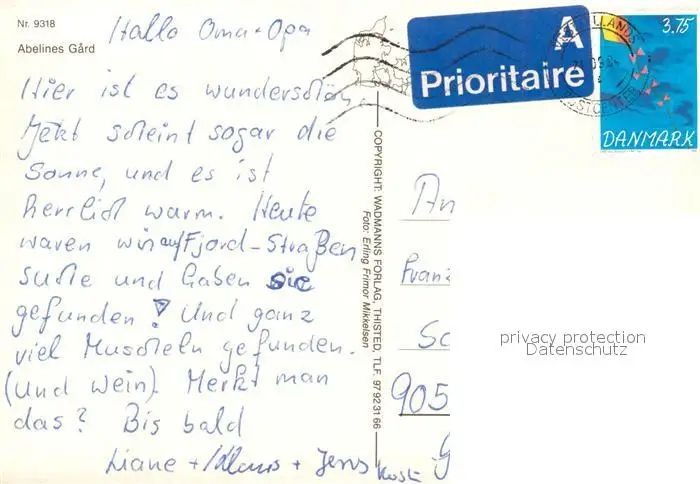 Nr. 9318
Abelines Gård
Hallo Oma + Opa
Hier ist es wunderschön.
Jetzt scheint sogar die
Sonne, und es ist
herrlich warm. Heute
waren wir auf Fjord-Straßen
suche und haben sie
gefunden! Und ganz
viel Muscheln gefunden.
(und wein). Merkt man
das? Bis bald
Liane + Klaus + Jens
A
Prioritaire
3.75
DANMARK
COPYRIGHT: WADMANNS FORLAG, THISTED, TLF. 97 92 31 66
Foto: Erling Frimor Mikkelsen
An
Franz
Sc
905
G
privacy protection
Datenschutz